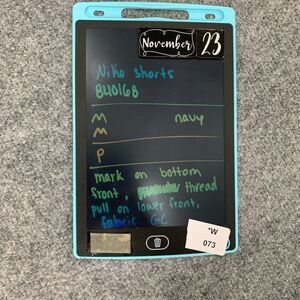 November 23
Nike shorts
840168
M navy
M
P
mark on bottom
front, thread
pull on lower front,
fabric GC
"W
073